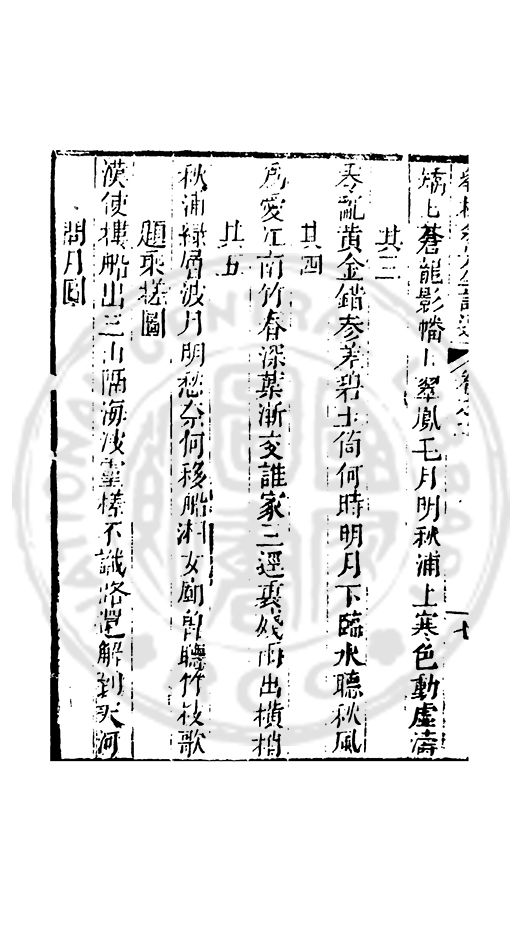 矯矯蒼龍影幡幡翠鳳毛月明秋浦上寒色動虛濤
其三
亂黃金錯參差碧玉倚何時明月下臨水聽秋風
其四
為愛江南竹春深葉漸交誰家三逕裏殘雨出橫梢
其五
秋浦綠層波月明愁奈何移船湘女廟自聽竹枝歌
題乘槎圖
漢使樓船出三山隔海波靈槎不識路解到天河
問月圖
七